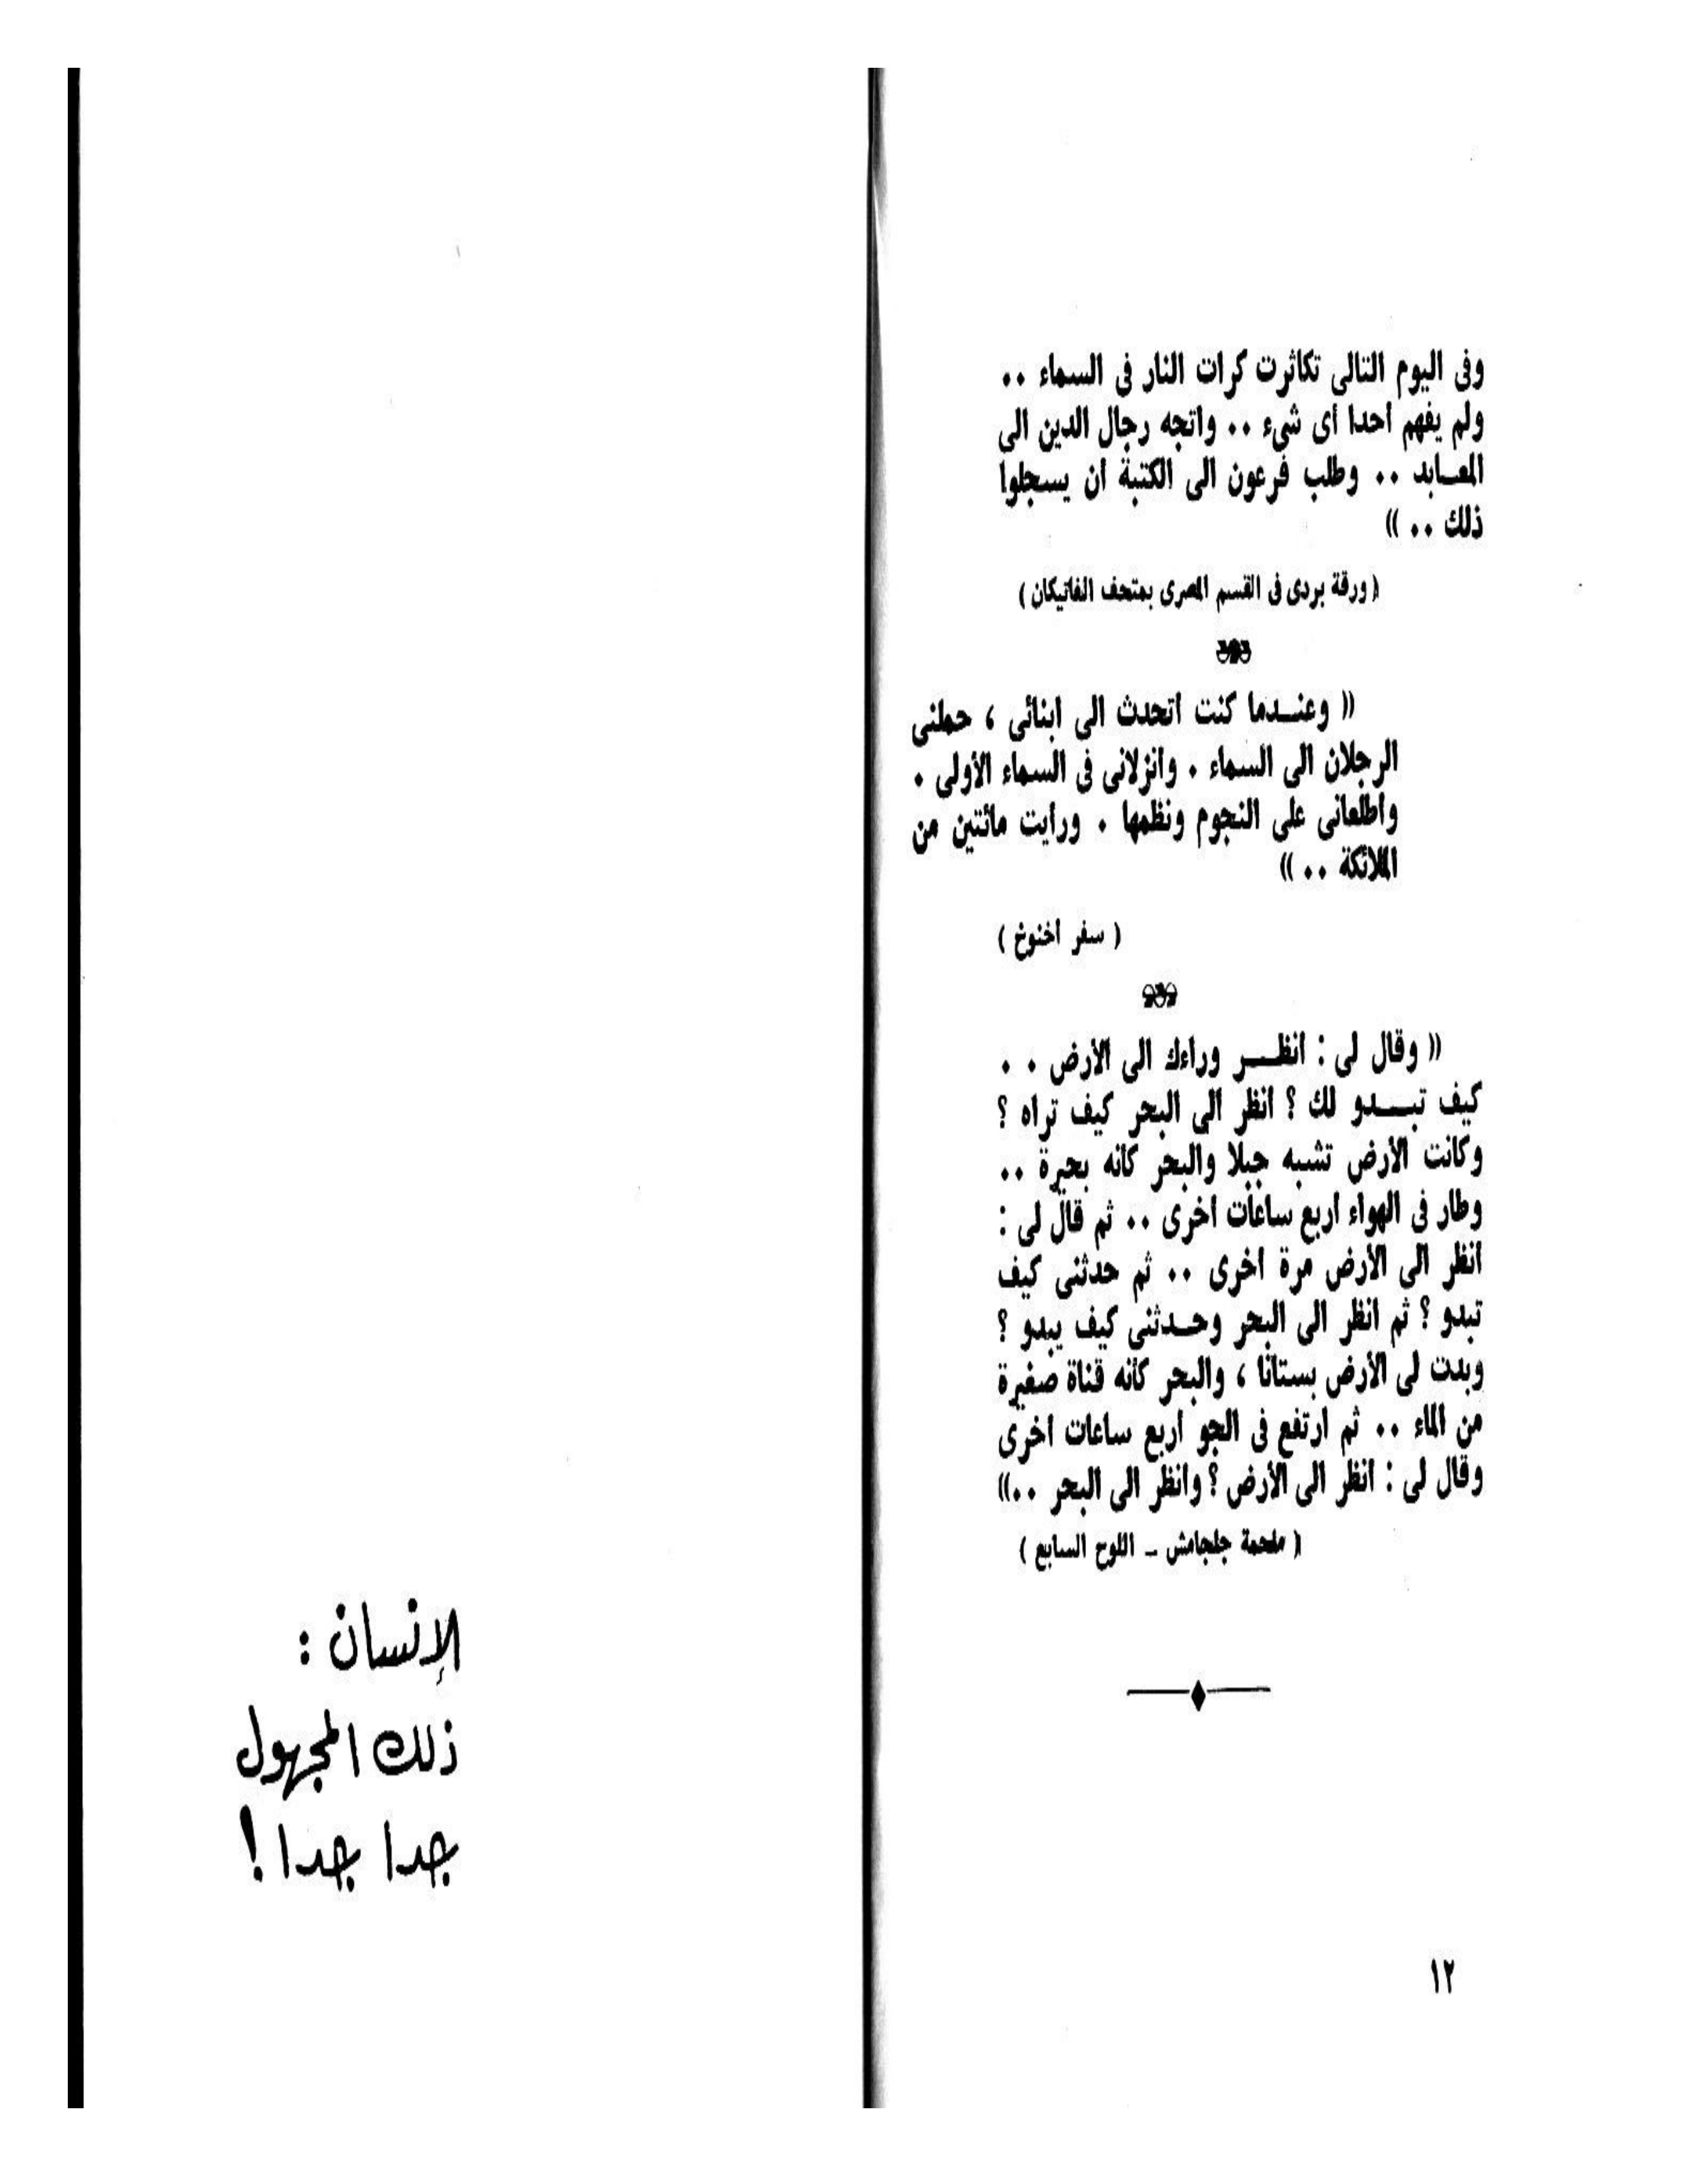 وفى اليوم التالى تكاثرت كرات النار فى السماء ..
ولم يفهم احدا اى شىء .. واتجه رجال الدين الى
المعابد .. وطلب فرعون الى الكتبة ان يسجلوا
ذلك .. »
( ورقة بردى فى القسم المصرى بمتحف الفاتيكان )
« وعندما كنت اتحدث الى ابنائى ، حملنى
الرجلان الى السماء . وانزلانى فى السماء الأولى .
واطلعانى على النجوم ونظمها . ورايت مائتين من
الملائكة .. »
( سفر اخنوخ )
« وقال لى : انظر وراءك الى الأرض . .
كيف تبدو لك ؟ انظر الى البحر كيف تراه ؟
وكانت الأرض تشبه جبلا والبحر كانه بحيرة ..
وطار فى الهواء اربع ساعات اخرى .. ثم قال لى :
انظر الى الأرض مرة اخرى .. ثم حدثنى كيف
تبدو ؟ ثم انظر الى البحر وحدثنى كيف يبدو ؟
وبدت لى الأرض بستانا ، والبحر كانه قناة صغيرة
من الماء .. ثم ارتفع فى الجو اربع ساعات اخرى
وقال لى : انظر الى الأرض ؟ وانظر الى البحر ..»
( ملحمة جلجامش ـ اللوح السابع )
١٢
الإنسان :
ذلك المجهول
جدا جدا !